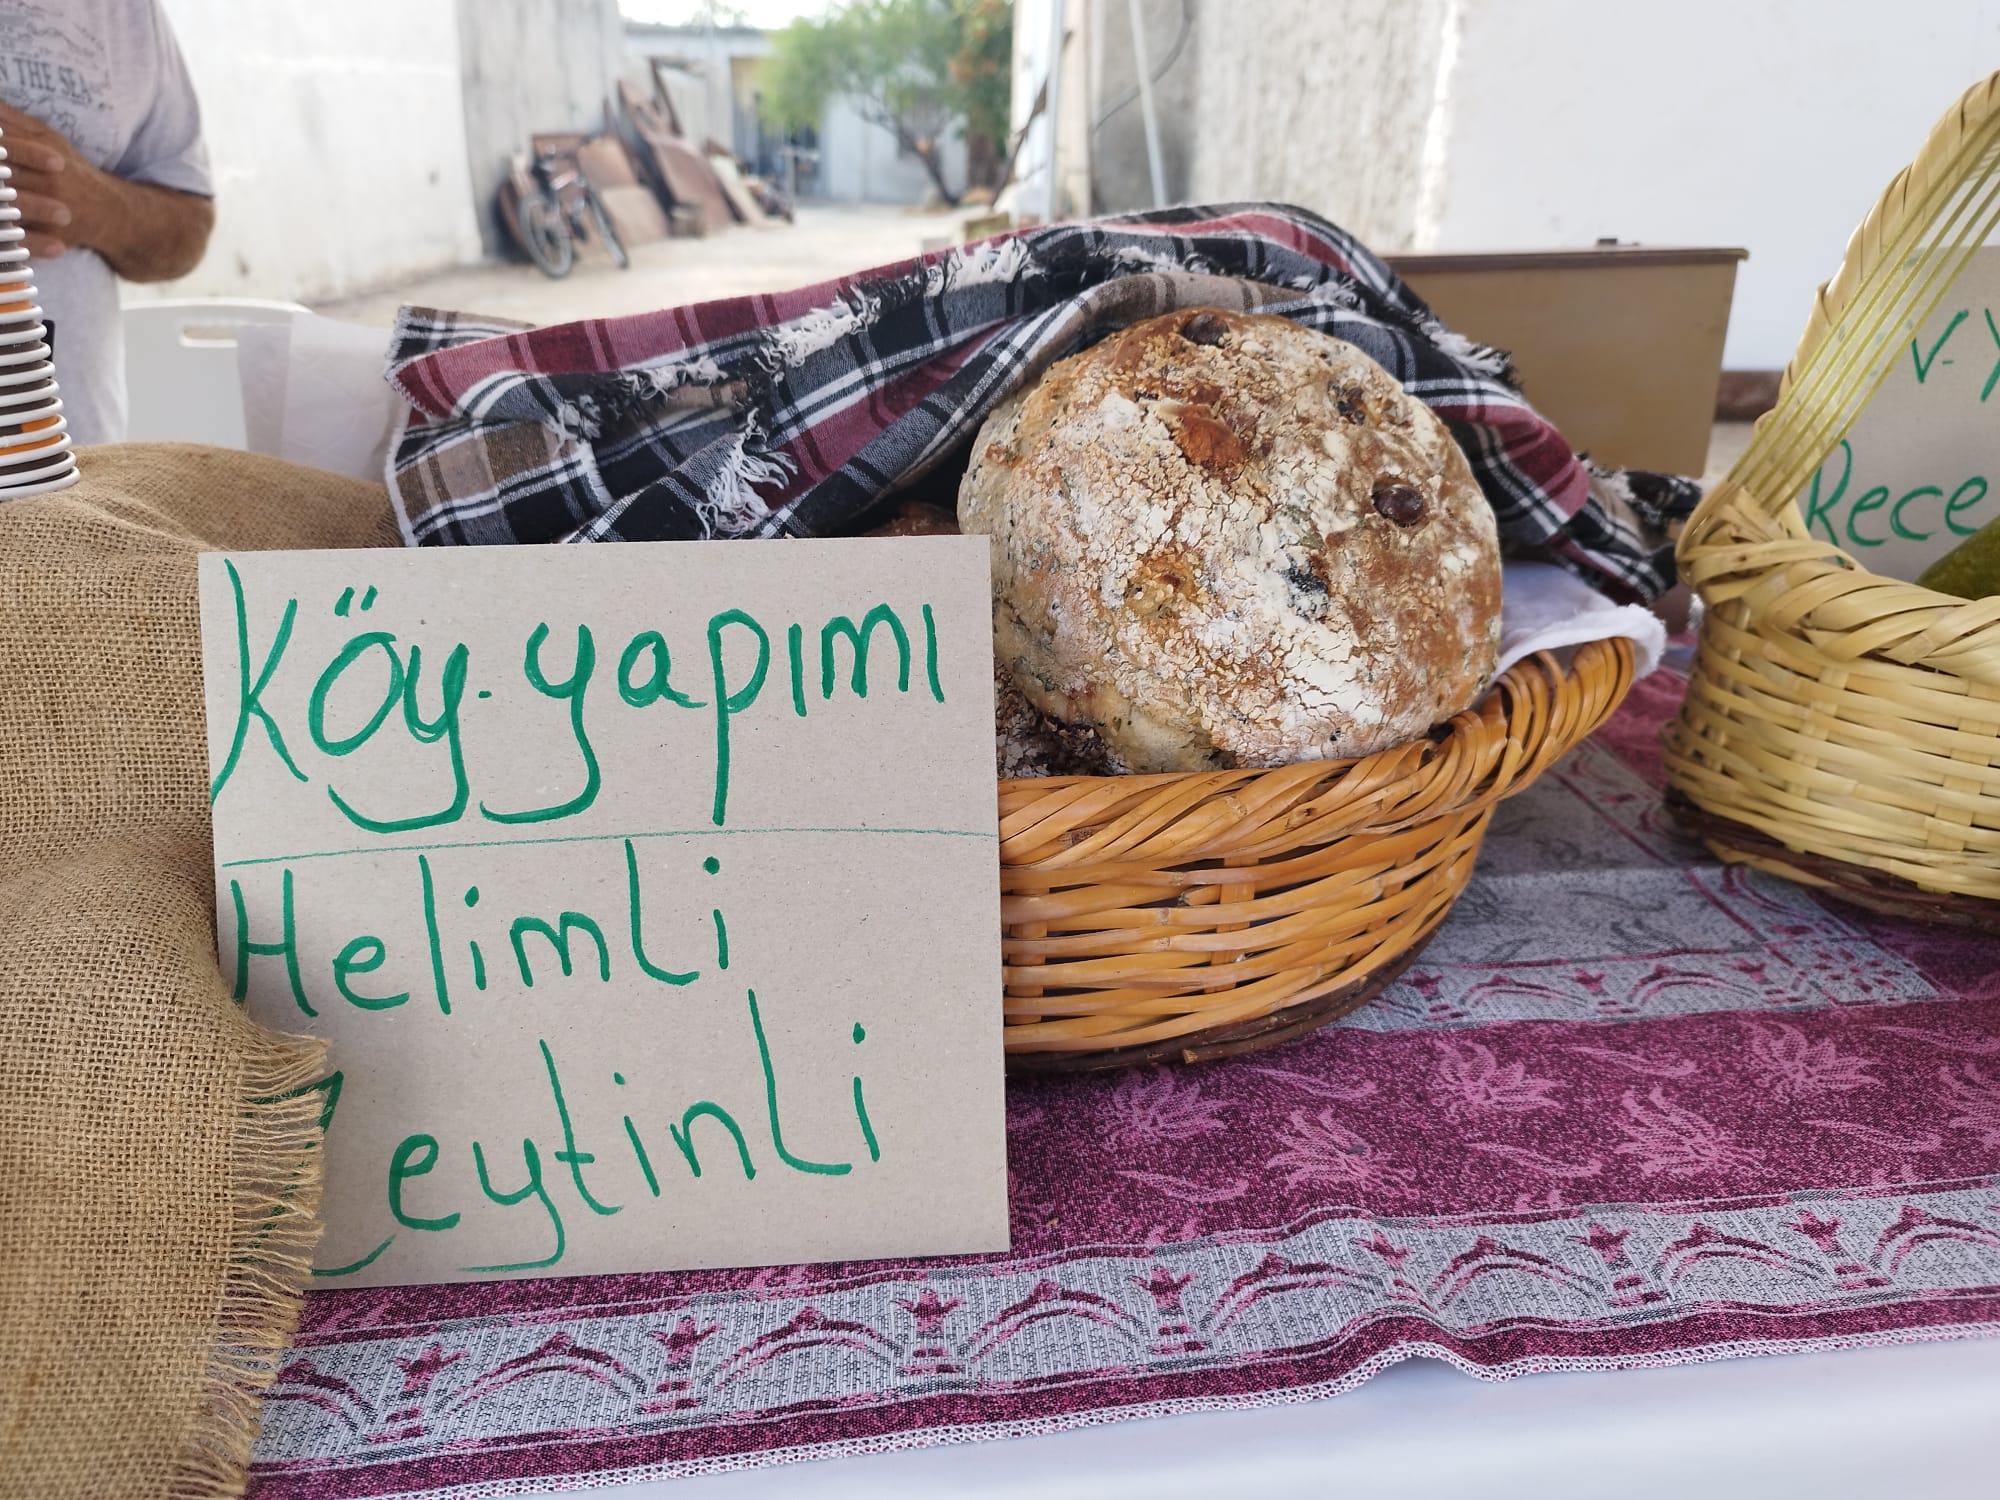 N THE SEA
Köy-yapımı
Helimli
Zeytinli